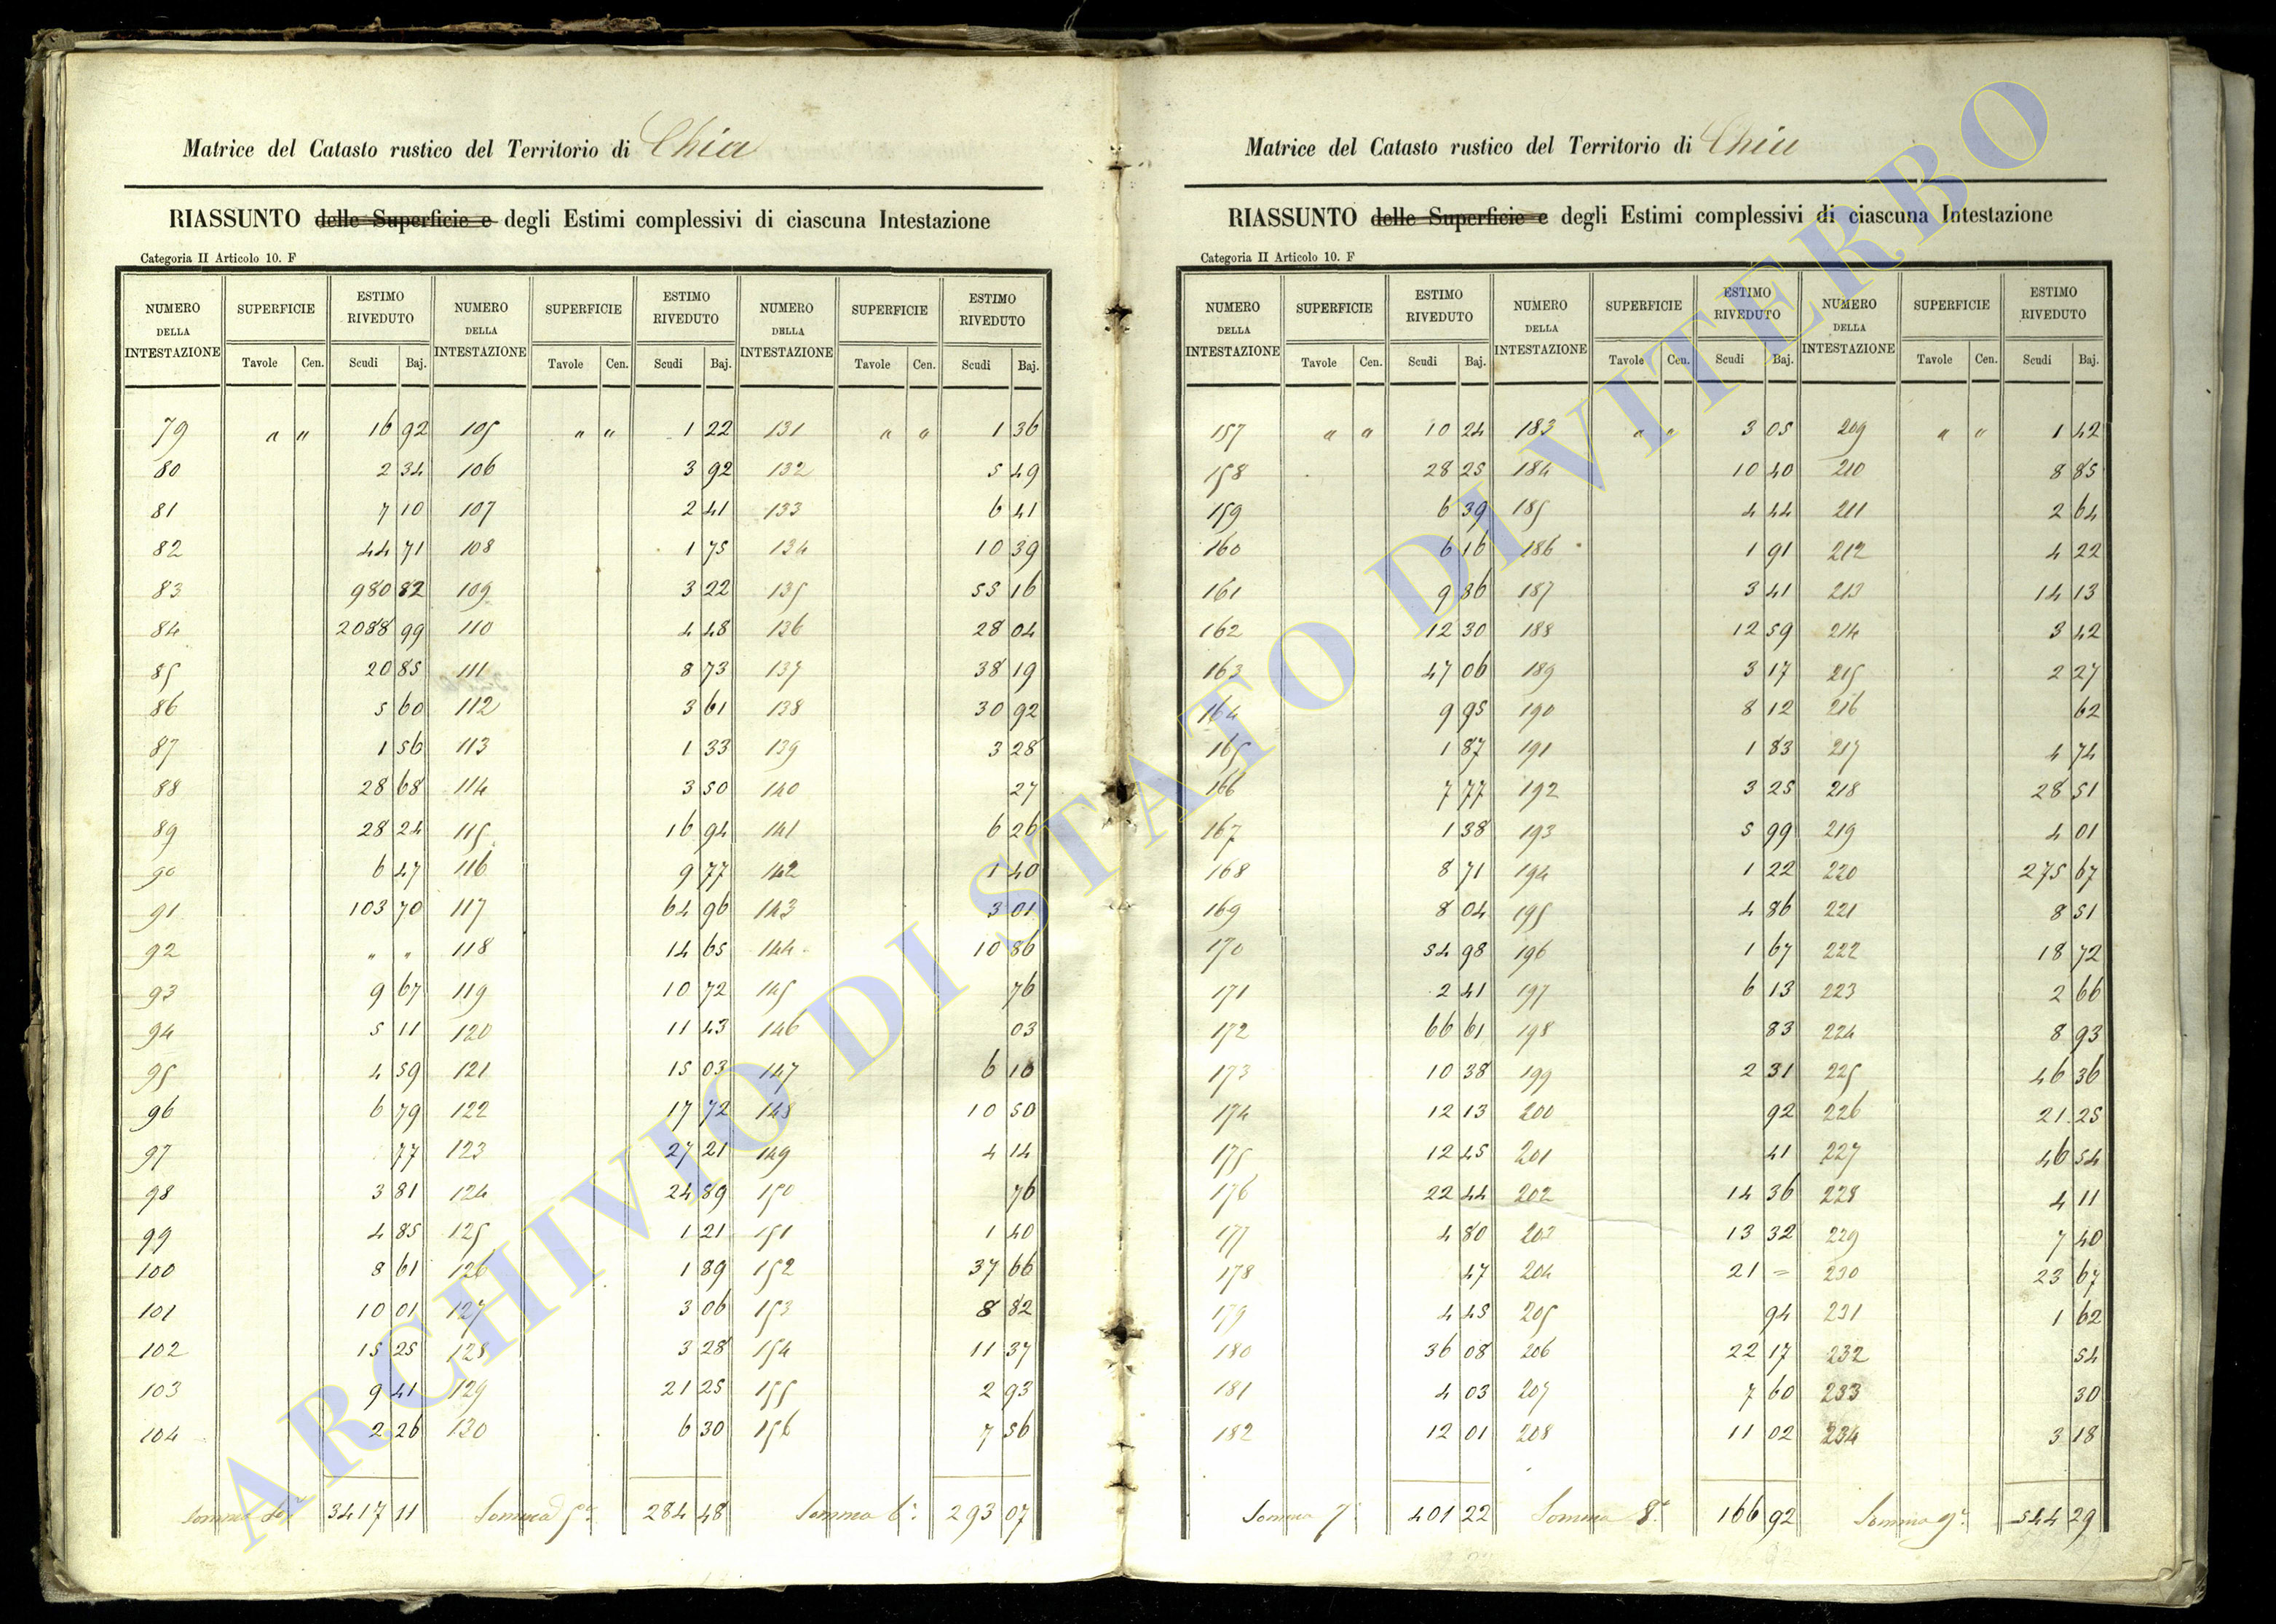 Matrice del Catasto rustico del Territorio di Chia
RIASSUNTO delle Superficie e degli Estimi complessivi di ciascuna Intestazione
Categoria II Articolo 10. F
NUMERO DELLA INTESTAZIONE SUPERFICIE ESTIMO RIVEDUTO NUMERO DELLA INTESTAZIONE SUPERFICIE ESTIMO RIVEDUTO NUMERO DELLA INTESTAZIONE SUPERFICIE ESTIMO RIVEDUTO
Tavole Cen. Scudi Baj. Tavole Cen. Scudi Baj. Tavole Cen. Scudi Baj.
79 " " 16 92 105 " " 1 22 131 " " 1 36
80 2 34 106 3 92 132 5 49
81 7 10 107 2 41 133 6 41
82 44 71 108 1 75 134 10 39
83 980 82 109 3 22 135 55 16
84 2088 99 110 4 48 136 28 04
85 20 85 111 8 73 137 38 19
86 5 60 112 3 61 138 30 92
87 1 56 113 1 33 139 3 28
88 28 68 114 3 50 140 27
89 28 24 115 16 94 141 6 26
90 6 47 116 9 77 142 1 40
91 103 70 117 64 96 143 3 01
92 " " 118 14 65 144 10 86
93 9 67 119 10 72 145 76
94 5 11 120 11 43 146 03
95 4 59 121 15 03 147 6 10
96 6 79 122 17 72 148 10 50
97 77 123 27 21 149 4 14
98 3 81 124 24 89 150 76
99 4 85 125 1 21 151 1 40
100 8 61 126 1 89 152 37 66
101 10 01 127 3 06 153 8 82
102 15 25 128 3 28 154 11 37
103 9 41 129 21 25 155 2 93
104 2 26 130 6 30 156 7 56
Somma 4a 3417 11 Somma 5a 284 48 Somma 6a 293 07
Matrice del Catasto rustico del Territorio di Chia
RIASSUNTO delle Superficie e degli Estimi complessivi di ciascuna Intestazione
Categoria II Articolo 10. F
NUMERO DELLA INTESTAZIONE SUPERFICIE ESTIMO RIVEDUTO NUMERO DELLA INTESTAZIONE SUPERFICIE ESTIMO RIVEDUTO NUMERO DELLA INTESTAZIONE SUPERFICIE ESTIMO RIVEDUTO
Tavole Cen. Scudi Baj. Tavole Cen. Scudi Baj. Tavole Cen. Scudi Baj.
157 " " 10 24 183 " " 3 05 209 " " 1 42
158 28 25 184 10 40 210 8 85
159 6 39 185 4 44 211 2 64
160 6 16 186 1 91 212 4 22
161 9 36 187 3 41 213 14 13
162 12 30 188 12 59 214 3 42
163 47 06 189 3 17 215 2 27
164 9 95 190 8 12 216 62
165 1 87 191 1 83 217 4 74
166 7 77 192 3 25 218 28 51
167 1 38 193 5 99 219 4 01
168 8 71 194 1 22 220 275 67
169 8 04 195 4 86 221 8 51
170 54 98 196 1 67 222 18 72
171 2 41 197 6 13 223 2 66
172 66 61 198 83 224 8 93
173 10 38 199 2 31 225 46 36
174 12 13 200 92 226 21 25
175 12 45 201 41 227 46 54
176 22 44 202 14 36 228 4 11
177 4 80 203 13 32 229 7 40
178 47 204 21 = 230 23 67
179 4 45 205 94 231 1 62
180 36 08 206 22 17 232 54
181 4 03 207 7 60 233 30
182 12 01 208 11 02 234 3 18
Somma 7a 401 22 Somma 8a 166 92 Somma 9a 544 29
ARCHIVIO DI STATO DI VITERBO